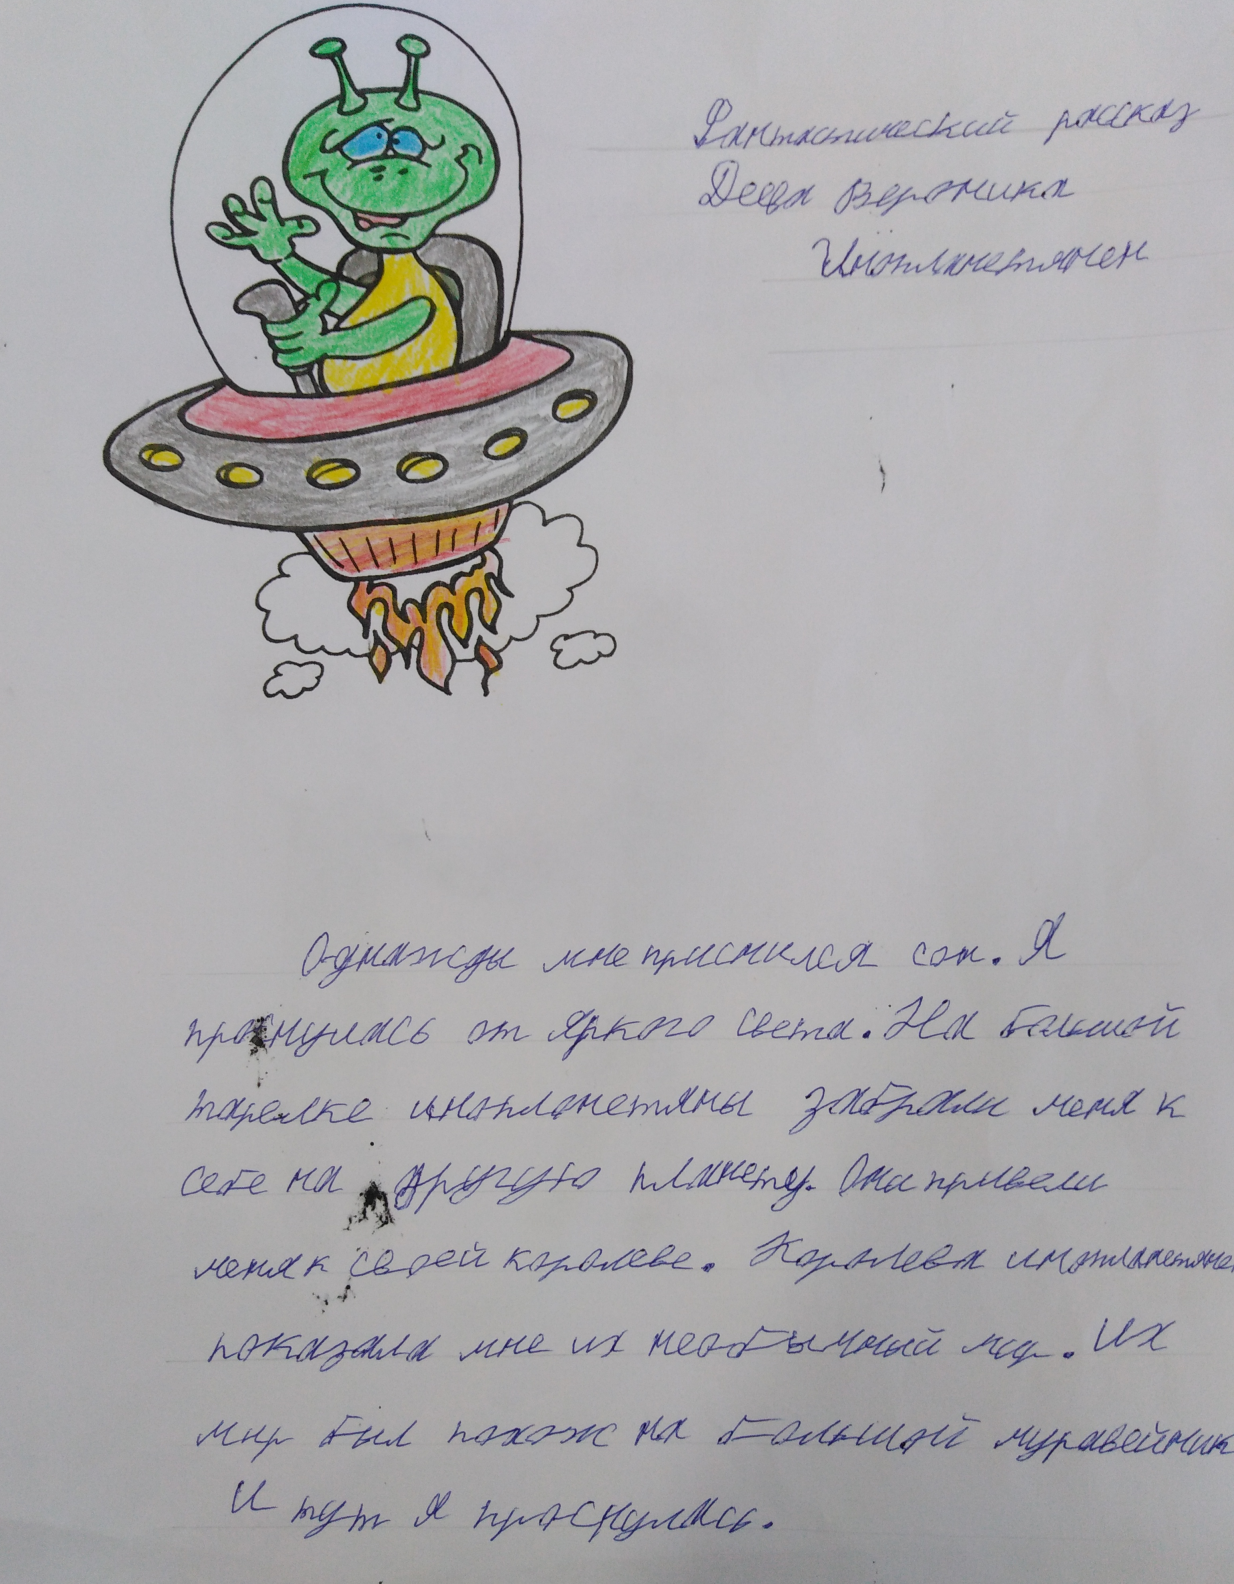 Фантастический рассказ
Деева Вероника
Инопланетянен
Однажды мне приснился сон. Я
проснулась от яркого света. На большой
тарелке инопланетяны забрали меня к
себе на другую планету. Они привели
меня к своей королеве. Королева инопланетянен
показала мне их необычный мир. Их
мир был похож на большой муравейник
И тут я проснулась.